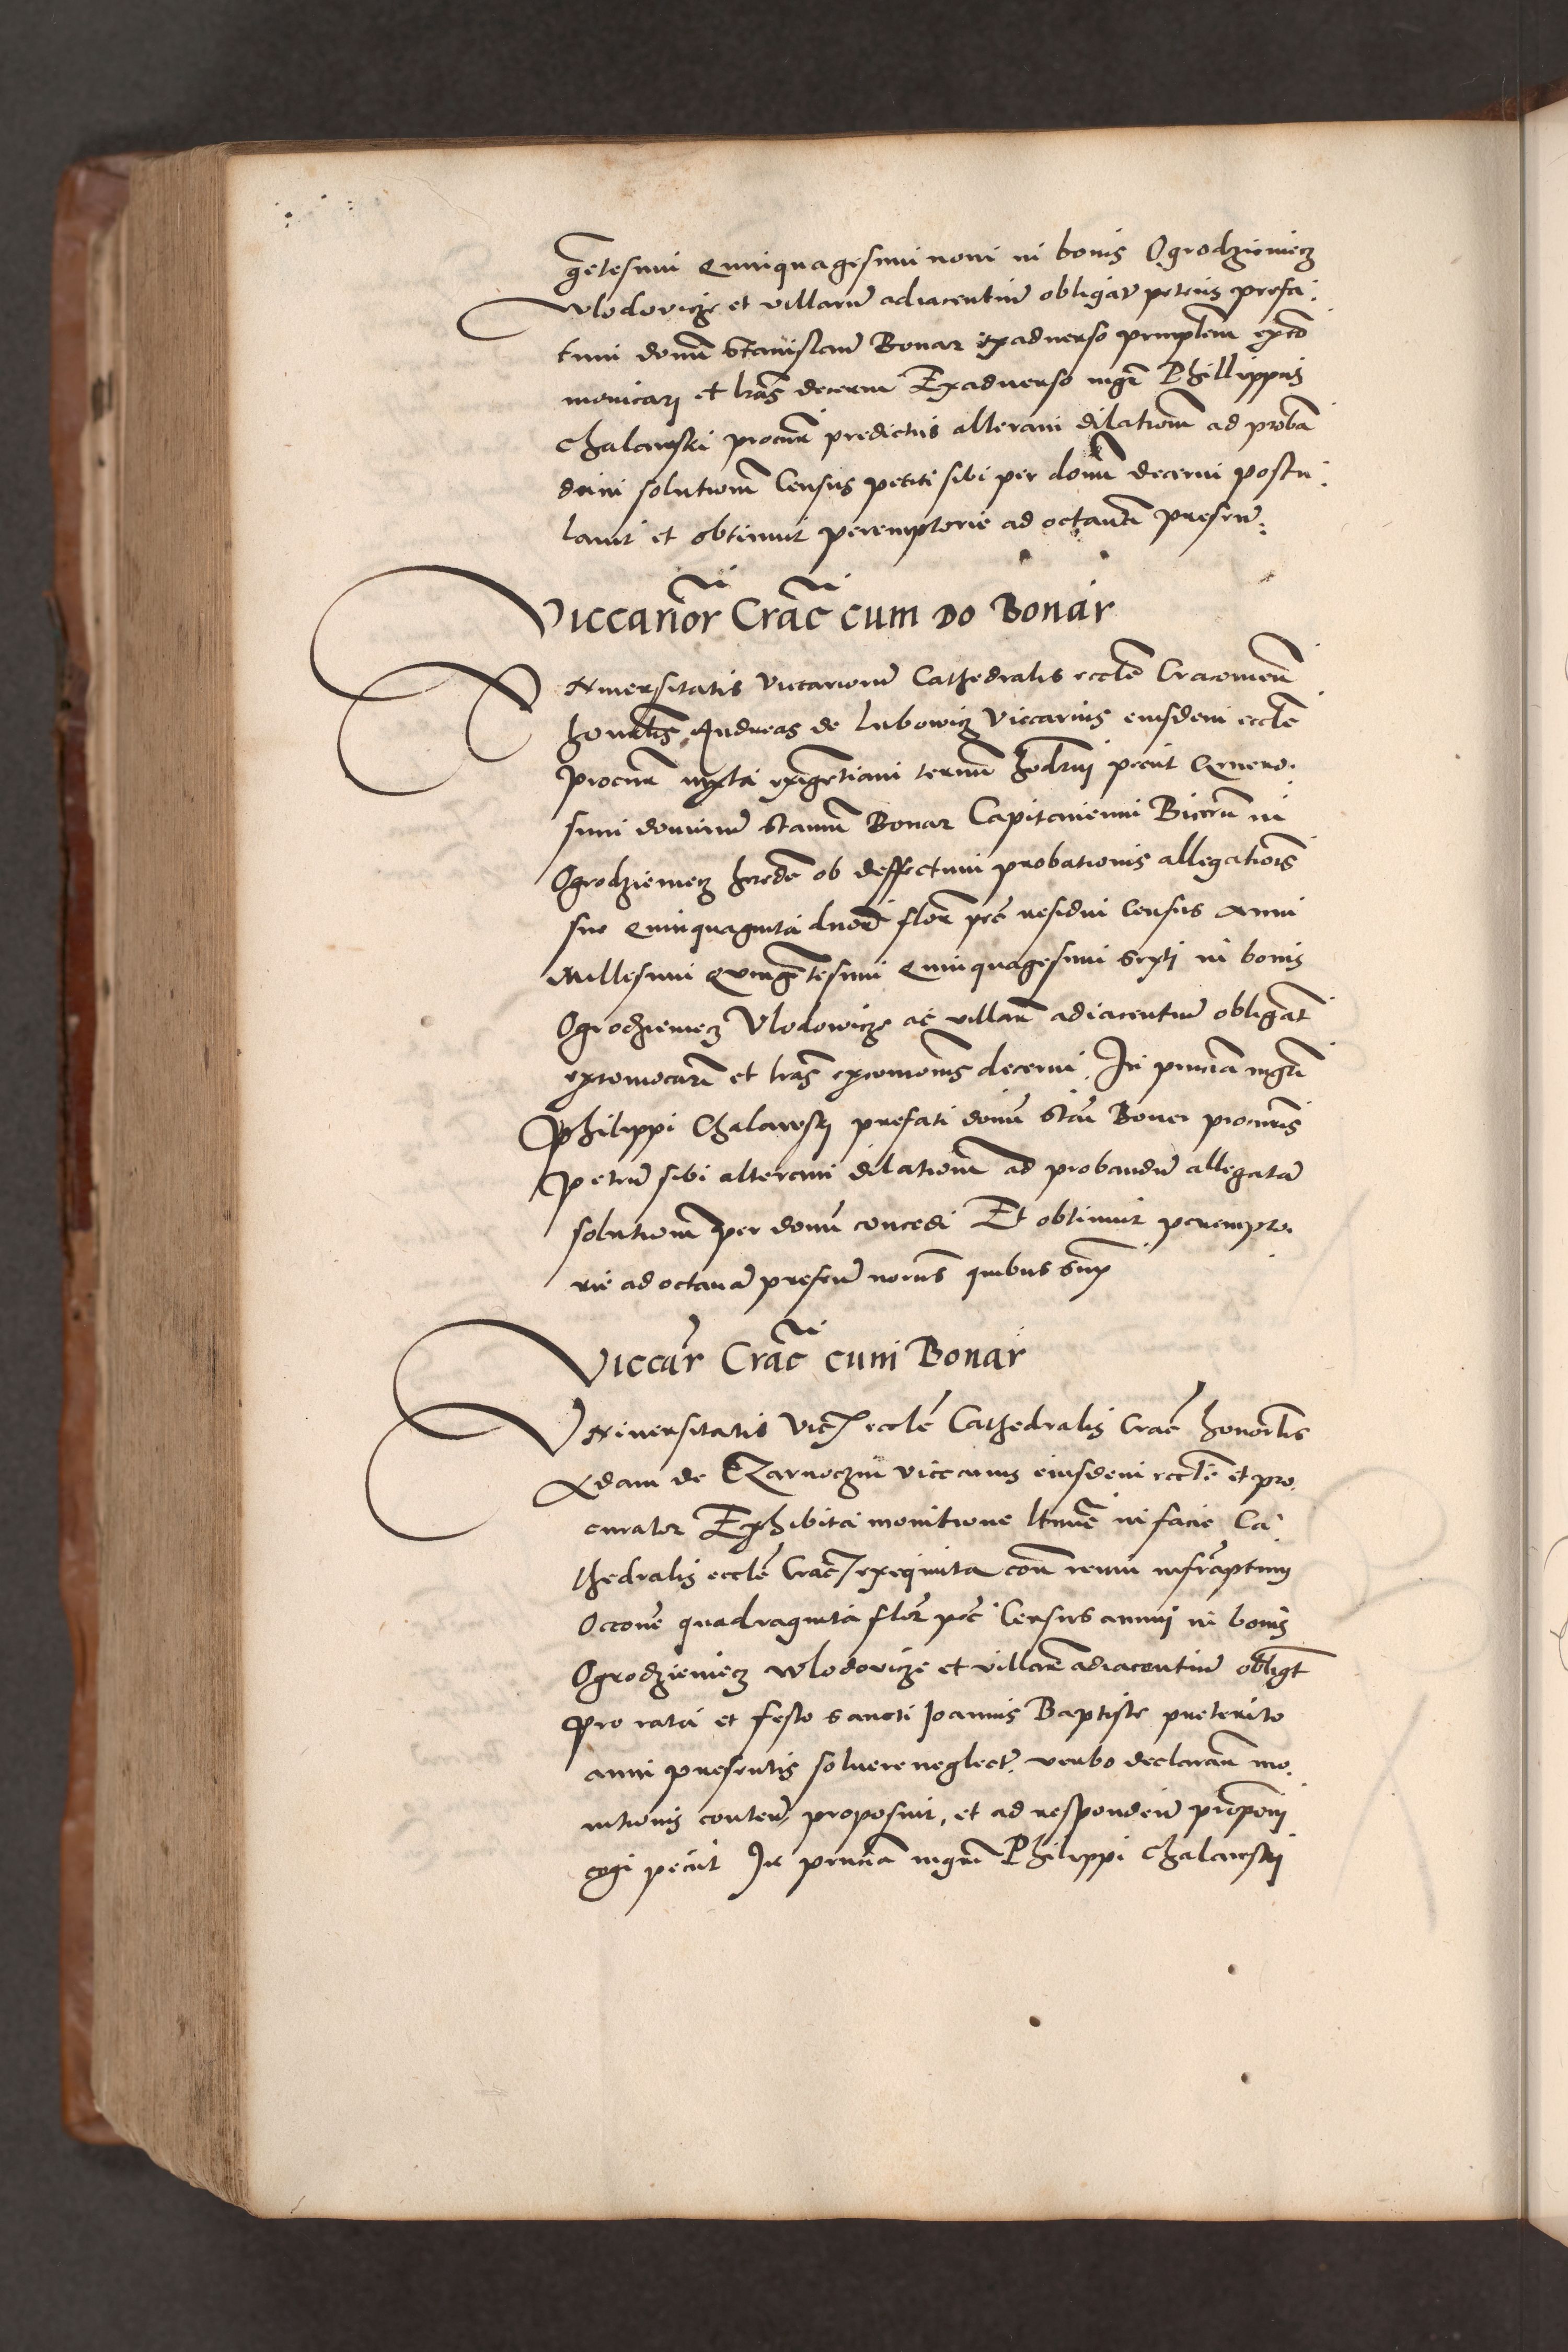 gētesimi Quinquagesimi noni in bonis Ogrodzieniecz
Wlodovicze et villarum adiacentium obligat petens prefa
tum donū Stanislaū Bonar exadverso principlem exco
monicari et lr̄as decerni Exadverso mgr̄ Phillippus
Chalawski procur̄ predictus alteram dilationem ad proba
dum solutionē Census petiti sibi per donū decerni postu
lavit et obtinuit peremptorie ad octavā presen̄
Viccarior̄ Crac̄ cum Do Bonar
Universitatis Viccariorum Cathedralis eccl̄e Cracovien̄
honor̄lis Andreas de Lubowicz Viccarius eiusdem eccl̄e
procur̄ iuxta exigētiam termī hodierni petiit Genero
sum dominū Stanū Bonar Capitaneum Biecen̄ in
Ogrodzieniecz hr̄edē ob deffectum probationis allegationis
sue Quinquaginta duor̄ flor̄ pec̄ residui Census anni
Millesimi Quingētesimi Quinquagesimi sexti in bonis
Ogrodzieniecz Vlodowicze ac villar̄ adiacentiū obligāt
excomocari et lr̄as excomonis decerni. In pn̄tia mgr̄i
Philippi Chalawski prefati donī Stan̄ Boner procur̄is
petentis sibi alteram dilationē ad probandū allegatā
solutionē per donū concedi Et obtinuit perempto
rie ad octavā presen̄
Viccar̄ Crac̄ cum Bonar
Universitatis Vic̄ eccl̄e Cathedralis Crac̄ honor̄lis
Adam de Czarnoczin viccarius eiusdem eccl̄e et pro
curator Exhibita monitione ltīme in facie Ca
thedralis eccl̄e Crac̄ exequuta con̄ reum infrascriptum
Occōne quadraginta flor̄ pec̄ Census annui in bonis
Ogrodzieniecz Wlodovicze et villar̄ adiacentiū obligt̄
pro rata et festo sancti Joannis Baptiste preterito
anni presentis solvere neglect̄. verbo declarau̅ mo
nitionis conten̄ proposuit, et ad respondeū
cogi petiit In pn̄tia mgr̄i Philippi Chalawski